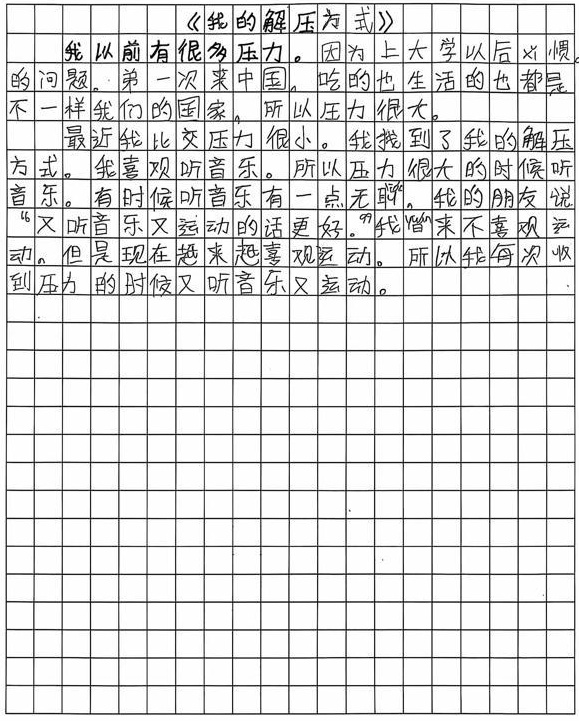 《我的解压方式》
我以前有很多压力。因为上大学以后习惯
的问题。第一次来中国。吃的也生活的也都是
不一样我们的国家。所以压力很大。
最近我比交压力很小。我找到了我的解压
方式。我喜观听音乐。所以压力很大的时候听
音乐。有时候听音乐有一点无聊。我的朋友说
“又听音乐又运动的话更好。”我 来不喜观运
动。但是现在越来越喜观运动。所以我每次收
到压力的时候又听音乐又运动。